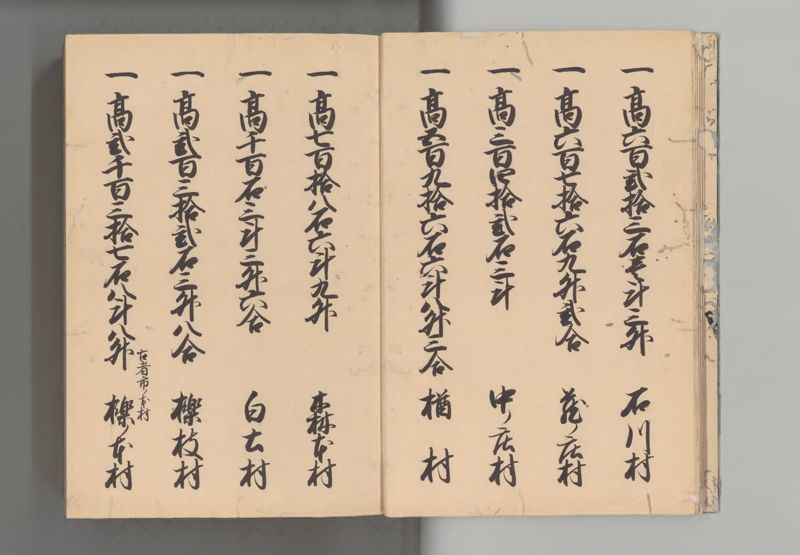 一高六百弐拾三石壱斗三升　石川村
一高六百七拾六石九升弐合　庄村
一高三百四拾弐石三斗　中ノ庄村
一高五百九拾六石六斗八升二合　楢村
一高七百拾八石六斗九升　森本村
一高千百石三斗三升六合　白土村
一高弐百三拾弐石三升八合　櫟枝村
一高弐千百三拾七石八斗八升　櫟ノ本村
古者市ノ本村